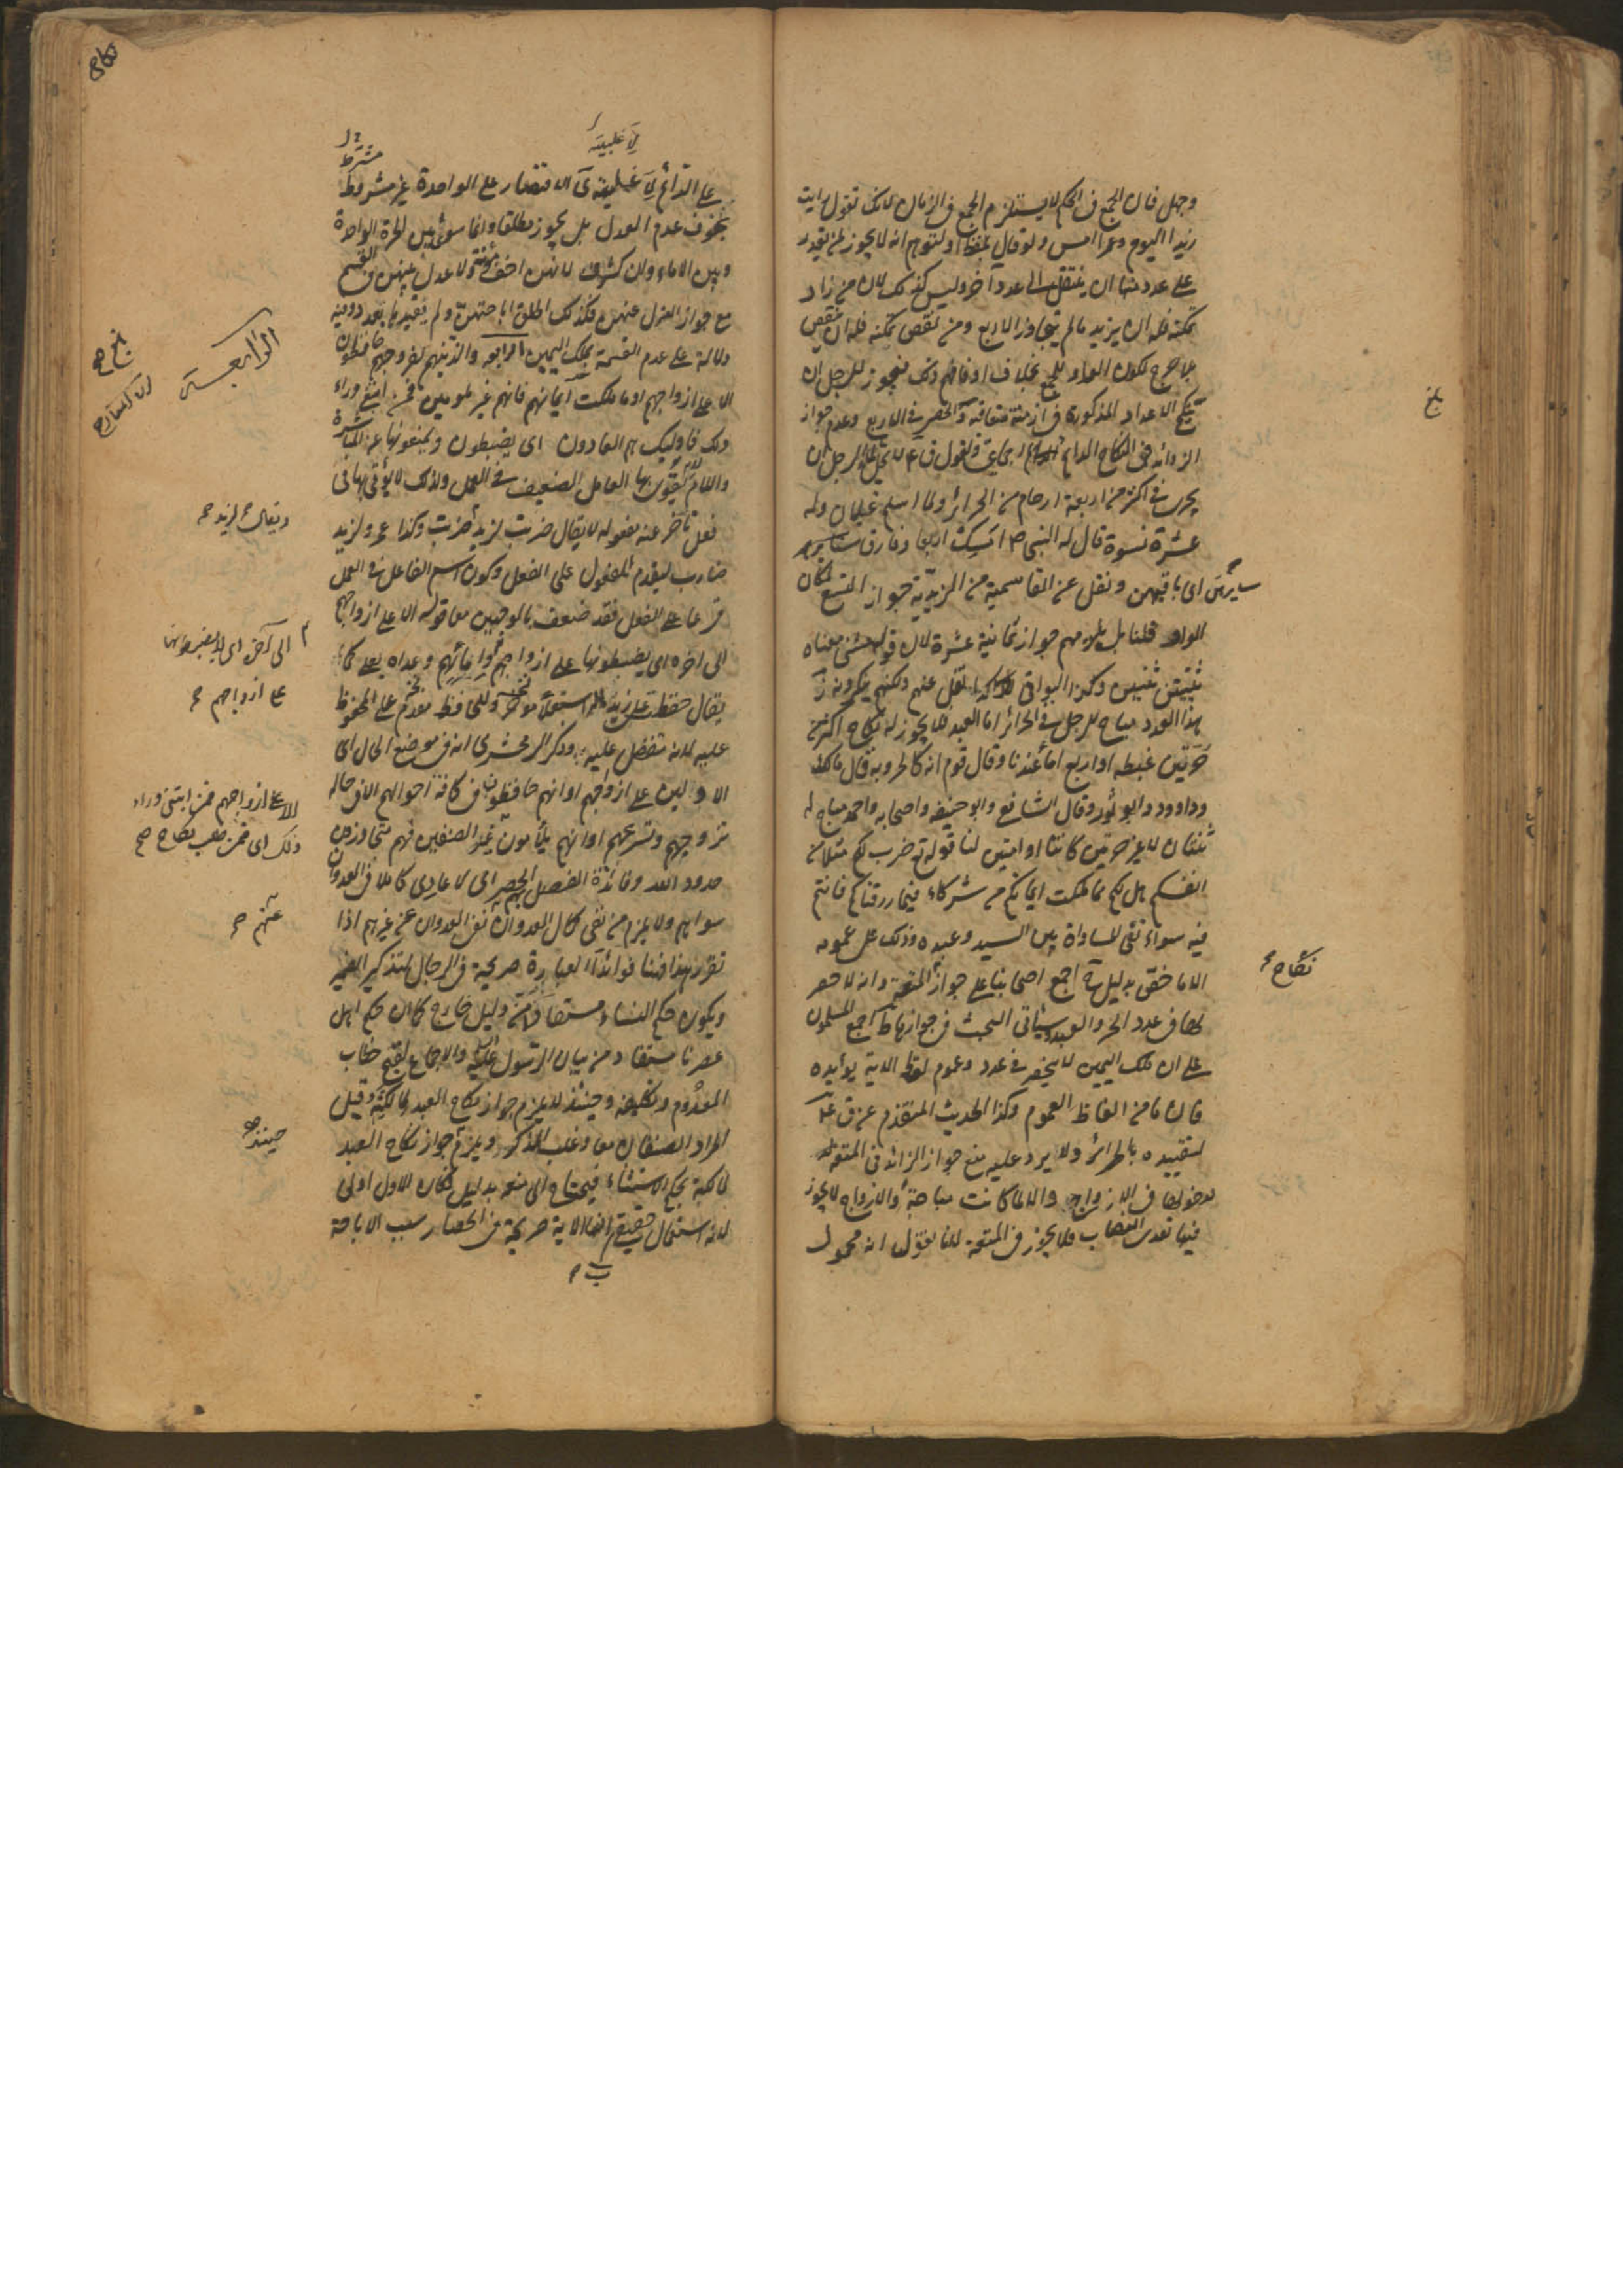 وجهل فان الجمع فی الحکم لا یستلزم الجمع فی الزمان لانک تقول رایت
زیدا الیوم وعمرا امس ولو قال بلفظ او لتوهم انه لا یجوز لمن یقدر
علی عدد منها ان ینتقل الی عدد آخر ولیس کذلک لان من زاد
تمکنه فله ان یزید ما لم یتجاوز الاربع ومن نقص تمکنه فله ان ینقص
بلا حرج لکون الواو للجمع بخلاف او فافهم ذلک فیجوز للرجل ان
ینکح الاعداد المذکورة فی ازمنة متعاقبة والحصر فی الاربع وعدم جواز
الزوائد فی النکاح الدائم اجماعی ولقول ق ع لا یحل للرجل ان
یجری فی اکثر من اربعة ارحام من الحرائر ولما اسلم غیلان وله
عشرة نسوة قال له النبی ص امسک اربعا وفارق سایرهن
سایرهن ای باقیهن ونقل عن القاسمیة من الزیدیة جواز التسع لمکان
الواو قلنا بل یلزمهم جواز ثمانیة عشرة لان قوله مثنی معناه
ثنیتین ثنیتین وکذا البواقی نقل عنهم ولکنهم ینکرونه
هذا العدد مباح للرجل فی الحرائر اما العبد فلا یجوز له نکاح اکثر من
حرتین غبطه او اربع اماء عندنا وقال قوم انه کالحر وبه قال مالک
وداوود وابو ثور وقال الشافعی وابو حنیفه واصحابه واحمد مباح له
ثنتان لا غیر حرتین کانتا او امتین لنا قوله تع ضرب لکم مثلا من
انفسکم هل لکم مما ملکت ایمانکم من شرکاء فیما رزقناکم فانتم
فیه سواء نفی المساواة بین السید وعبده وذلک علی عمومه
الا ما خص بدلیل اجمع اصحابنا علی جواز المتعة وانه لا حصر
نکاح
لها فی عدد الحر والعبد وسیاتی البحث فی جوازها اجمع المسلمون
علی ان ملک الیمین لا ینحصر فی عدد وعموم لفظ الایة یؤیده
فان ما من الفاظ العموم وکذا الحدیث المتقدم عن ق ع
لتقییده بالحرائر ولا یرد علیه منع جواز الزائد فی المتعة
لدخولها فی الازواج والا لما کانت مباحة والازواج لا یجوز
فیها تعدی النصاب فلا یجوز فی المتعة لانا نقول انه محمول
بلغ
نکاح
علی الدائم لاغلبیته الاقتصار علی الواحدة غیر مشروط
بخوف عدم العدل بل یجوز مطلقا وانما سوی بین الحرة الواحدة
وبین الاماء وان کثرن لانهن اخف مؤنة ولا عدل بینهن فی القسم
مع جواز العزل عنهن فلذلک اطلق اباحتهن ولم یقید بعدد وفیه
دلالة علی عدم القسمة بملک الیمین الرابعه والذین هم لفروجهم حافظون
الا علی ازواجهم او ما ملکت ایمانهم فانهم غیر ملومین فمن ابتغی وراء
ذلک فاولئک هم العادون ای یضبطون ویمنعونها عن المباشرة
واللام یقوی بها العامل الضعیف فی العمل ولذلک لا یؤتی بها فی
فعل تاخر عنه مفعوله لا یقال ضربت لزید ضربت وکذا عمرو لزید
ضارب لیقدم المفعول علی الفعل وکون اسم الفاعل فی العمل
فرعا علی الفعل فقد ضعف بالوجهین معا قوله الا علی ازواجهم
الی اخره ای یضبطونها علی ازواجهم وامائهم وعداه بعلی کما
یقال حفظت علی زید
علیه لانه متفضل علیه وذکر الزمخشری انه فی موضع الحال ای
الا والین علی ازواجهم او انهم حافظون فی کافة احوالهم الا فی حال
تزوجهم وتسریهم او انهم یلامون غیر الصنفین فهم متجاوزون
حدود الله وفائدة الفصل الحصر ای لا عادی کاملا فی العدوان
سواهم ولا یلزم من نفی کمال العدوان نفی العدوان عن غیرهم اذا
تقرر هذا فهنا فوائد آ العبارة صریحة فی الرجال لتذکیر الضمیر
ویکون حکم النساء مستفادا من دلیل خارج کما ان حکم اهل
عصرنا مستفاد من بیان الرسول والاجماع لقبح خطاب
المعدوم وتکلیفه وحینئذ لا یلزم جواز نکاح العبد لمالکته وقیل
المراد الصنفان معا وغلب المذکر ویلزم جواز نکاح العبد
لمالکته بحکم الاستثناء فیحتاج الی منعه بدلیل فکان الاول اولی
لانه استعمال حقیقی الایة صریحة فی انحصار سبب الاباحة
لاغلبیته
مشترط
الرابعة
بلغ
ویقال لزید
الی آخره
علی ازواجهم
الا علی ازواجهم فمن ابتغی وراء
ذلک ای فمن طلب نکاح
عنهم
حینئذ